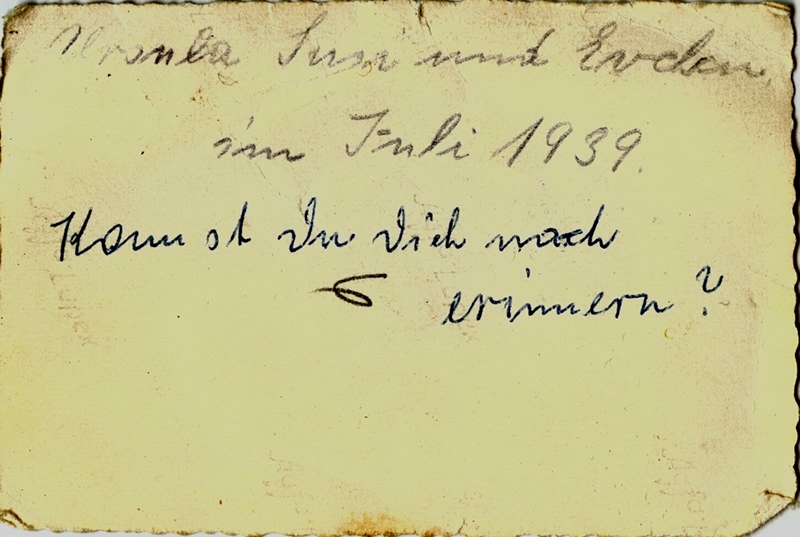 Ursula Susi und Evchen
im Juli 1939.
Kannst Du Dich noch
erinnern?